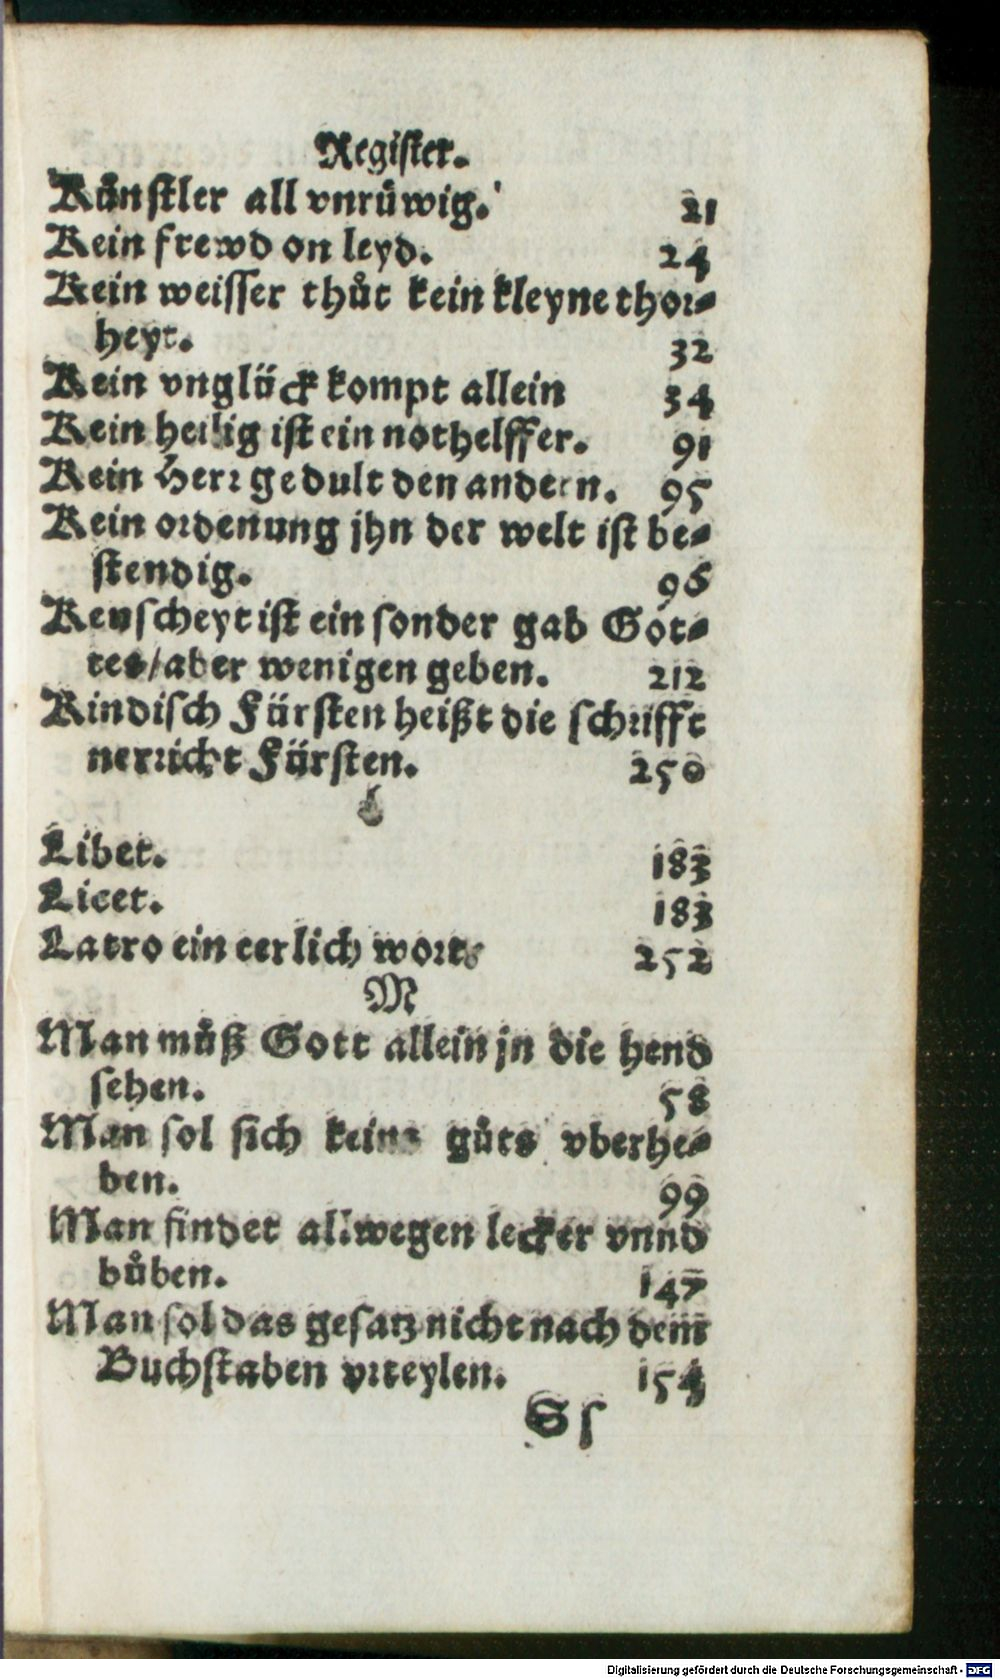 Register.
Künstler all vnrůwig. 21
Kein frewd on leyd. 24
Kein weisser thůt kein kleyne thor⸗
heyt. 32
Kein vnglück kompt allein 34
Kein heilig ist ein nothelffer. 91
Kein Herr gedult den andern. 95
Kein ordenung jhn der welt ist be⸗
stendig. 96
Keuscheyt ist ein sonder gab Got⸗
tes/aber wenigen geben. 212
Kindisch Fürsten heißt die schrifft
nerricht Fürsten. 250
Libet. 183
Licet. 183
Latro ein eerlich wort. 252
M
Man můß Gott allein jn die hend
sehen. 58
Man sol sich keins gůts vberhe⸗
ben. 99
Man findet allwegen lecker vnnd
bůben. 147
Man sol das gesatz nicht nach dem
Buchstaben vrteylen. 154
S s
Digitalisierung gefördert durch die Deutsche Forschungsgemeinschaft - DFG